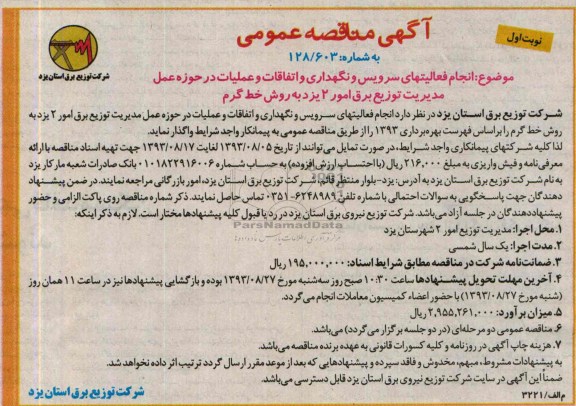 آگهی مناقصه عمومی
نوبت اول
به شماره: ۱۲۸/۶۰۳
شرکت توزیع برق استان یزد
موضوع: انجام فعالیتهای سرویس و نگهداری و اتفاقات و عملیات در حوزه عمل
مدیریت توزیع برق امور ۲ یزد به روش خط گرم
شرکت توزیع برق استان یزد در نظر دارد انجام فعالیتهای سرویس و نگهداری و اتفاقات و عملیات در حوزه عمل مدیریت توزیع برق امور ۲ یزد به
روش خط گرم را بر اساس فهرست بهره‌برداری ۱۳۹۳ را از طریق مناقصه عمومی به پیمانکار واجد شرایط واگذار نماید.
لذا کلیه شرکتهای پیمانکاری واجد شرایط، در صورت تمایل می‌توانند از تاریخ ۱۳۹۳/۰۸/۰۵ لغایت ۱۳۹۳/۰۸/۱۷ جهت تهیه اسناد مناقصه با ارائه
معرفی‌نامه و فیش واریزی به مبلغ ۲۱۶,۰۰۰ ریال (با احتساب ارزش افزوده) به حساب شماره ۰۱۰۱۸۲۲۹۱۶۰۰۶ بانک صادرات شعبه مارکار یزد
به نام شرکت توزیع برق استان یزد به آدرس: یزد- بلوار منتظر قائم، شرکت توزیع برق استان یزد، امور بازرگانی مراجعه نمایند. در ضمن پیشنهاد
دهندگان جهت پاسخگویی به سوالات احتمالی با شماره تلفن ۶۲۴۸۹۸۹-۰۳۵۱ تماس حاصل نمایند. ذکر شماره مناقصه روی پاکت الزامی و حضور
پیشنهاددهندگان در جلسه آزاد می‌باشد. شرکت توزیع نیروی برق استان یزد در رد یا قبول کلیه پیشنهادها مختار است. لازم به ذکر اینکه:
۱. محل اجرا: مدیریت توزیع امور ۲ شهرستان یزد
۲. مدت اجرا: یک سال شمسی
۳. ضمانت‌نامه شرکت در مناقصه مطابق شرایط اسناد: ۱۹۵,۰۰۰,۰۰۰ ریال
۴. آخرین مهلت تحویل پیشنهادها ساعت ۱۰:۳۰ صبح روز سه‌شنبه مورخ ۱۳۹۳/۰۸/۲۷ بوده و بازگشایی پیشنهادها نیز در ساعت ۱۱ همان روز
(شنبه مورخ ۱۳۹۳/۰۸/۲۷) با حضور اعضاء کمیسیون معاملات انجام می‌گردد.
۵. میزان برآورد: ۲,۹۵۵,۲۶۱,۰۰۰ ریال
۶. مناقصه عمومی دو مرحله‌ای (در دو جلسه برگزار می‌گردد) می‌باشد.
۷. هزینه چاپ آگهی در روزنامه و کلیه کسورات قانونی به عهده برنده مناقصه می‌باشد.
به پیشنهادات مشروط، مبهم، مخدوش و فاقد سپرده و پیشنهادهایی که بعد از موعد مقرر ارسال گردد ترتیب اثر داده نخواهد شد.
ضمناً این آگهی در سایت شرکت توزیع نیروی برق استان یزد قابل دسترسی می‌باشد.
شرکت توزیع برق استان یزد
م الف/۳۲۲۱
ParsNamadData